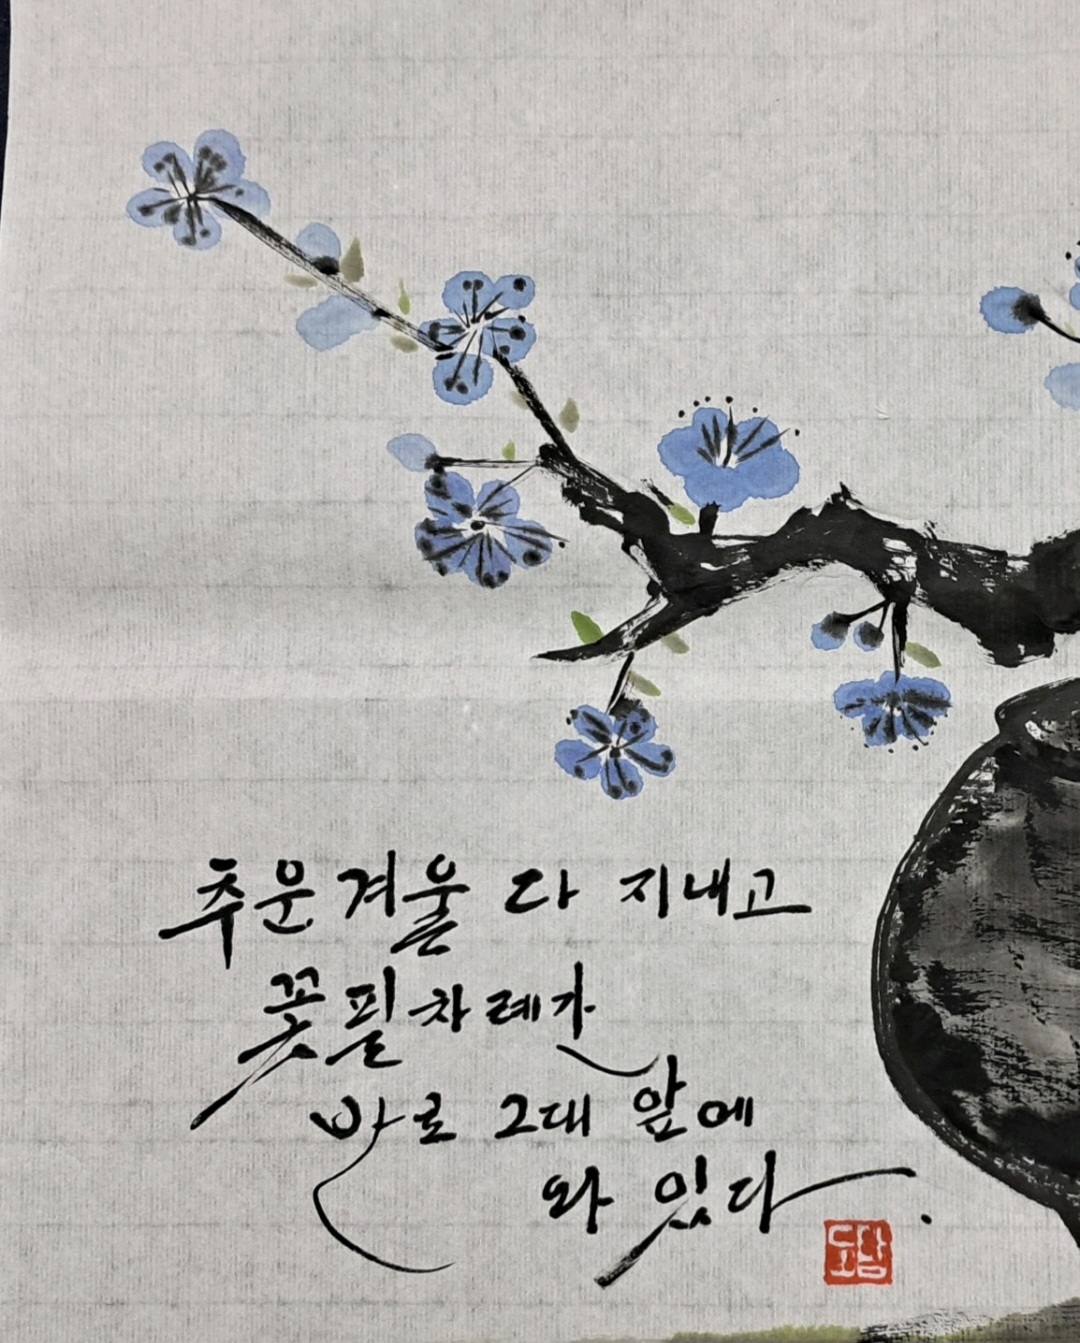 추운 겨울 다 지내고
꽃필 차례가
바로 그대 앞에
와 있다.
도담